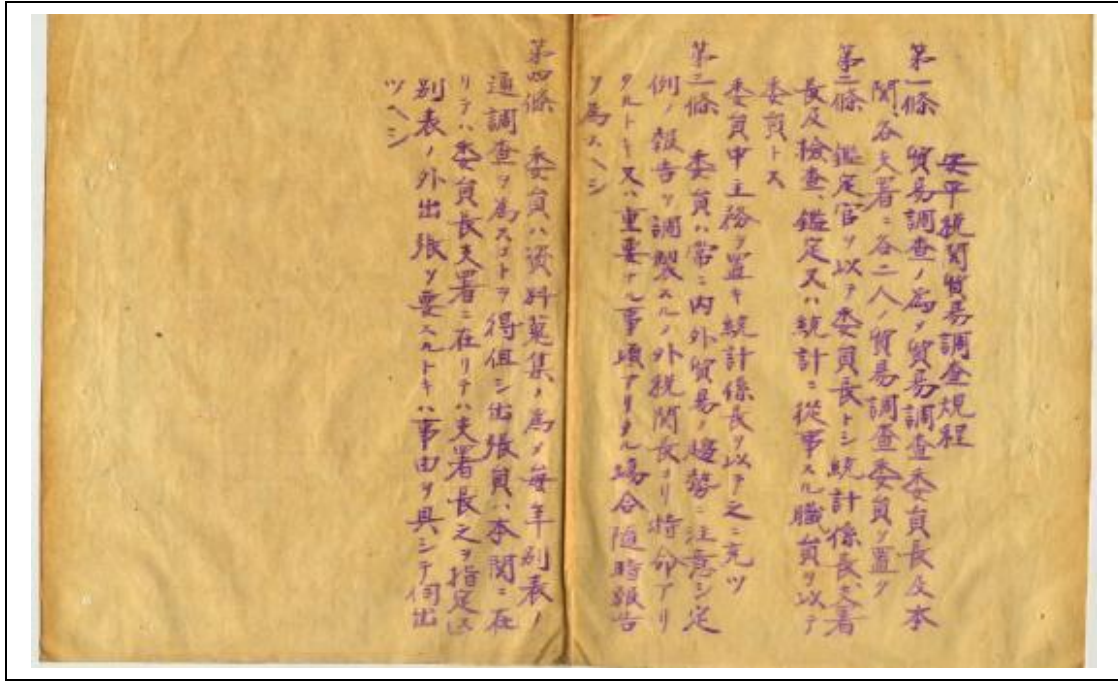 安平税関貿易調査規程
第一條　貿易調査ノ為メ貿易調査委員長及本
関、各支署ニ各二人ノ貿易調査委員ヲ置ク
第二條　鑑定官ヲ以テ委員長トシ統計係長、支署
長及検査、鑑定又ハ統計ニ從事スル職員ヲ以テ
委員トス
委員中主務ヲ置キ統計係長ヲ以テ之ニ充ツ
第三條　委員ハ常ニ内外貿易ノ趨勢ニ注意シ定
例ノ報告ヲ調製スルノ外税関長ヨリ特命アリ
タルトキ又ハ重要ナル事項アリタル場合随時報告
ヲ為スヘシ
第四條　委員ハ資料蒐集ノ為メ毎年別表ノ
通調査ヲ為スコトヲ得但シ出張員ハ本関ニ在
リテハ委員長支署ニ在リテハ支署長之ヲ指定ス
別表ノ外出張ヲ要スルトキハ事由ヲ具シテ伺出
ツヘシ